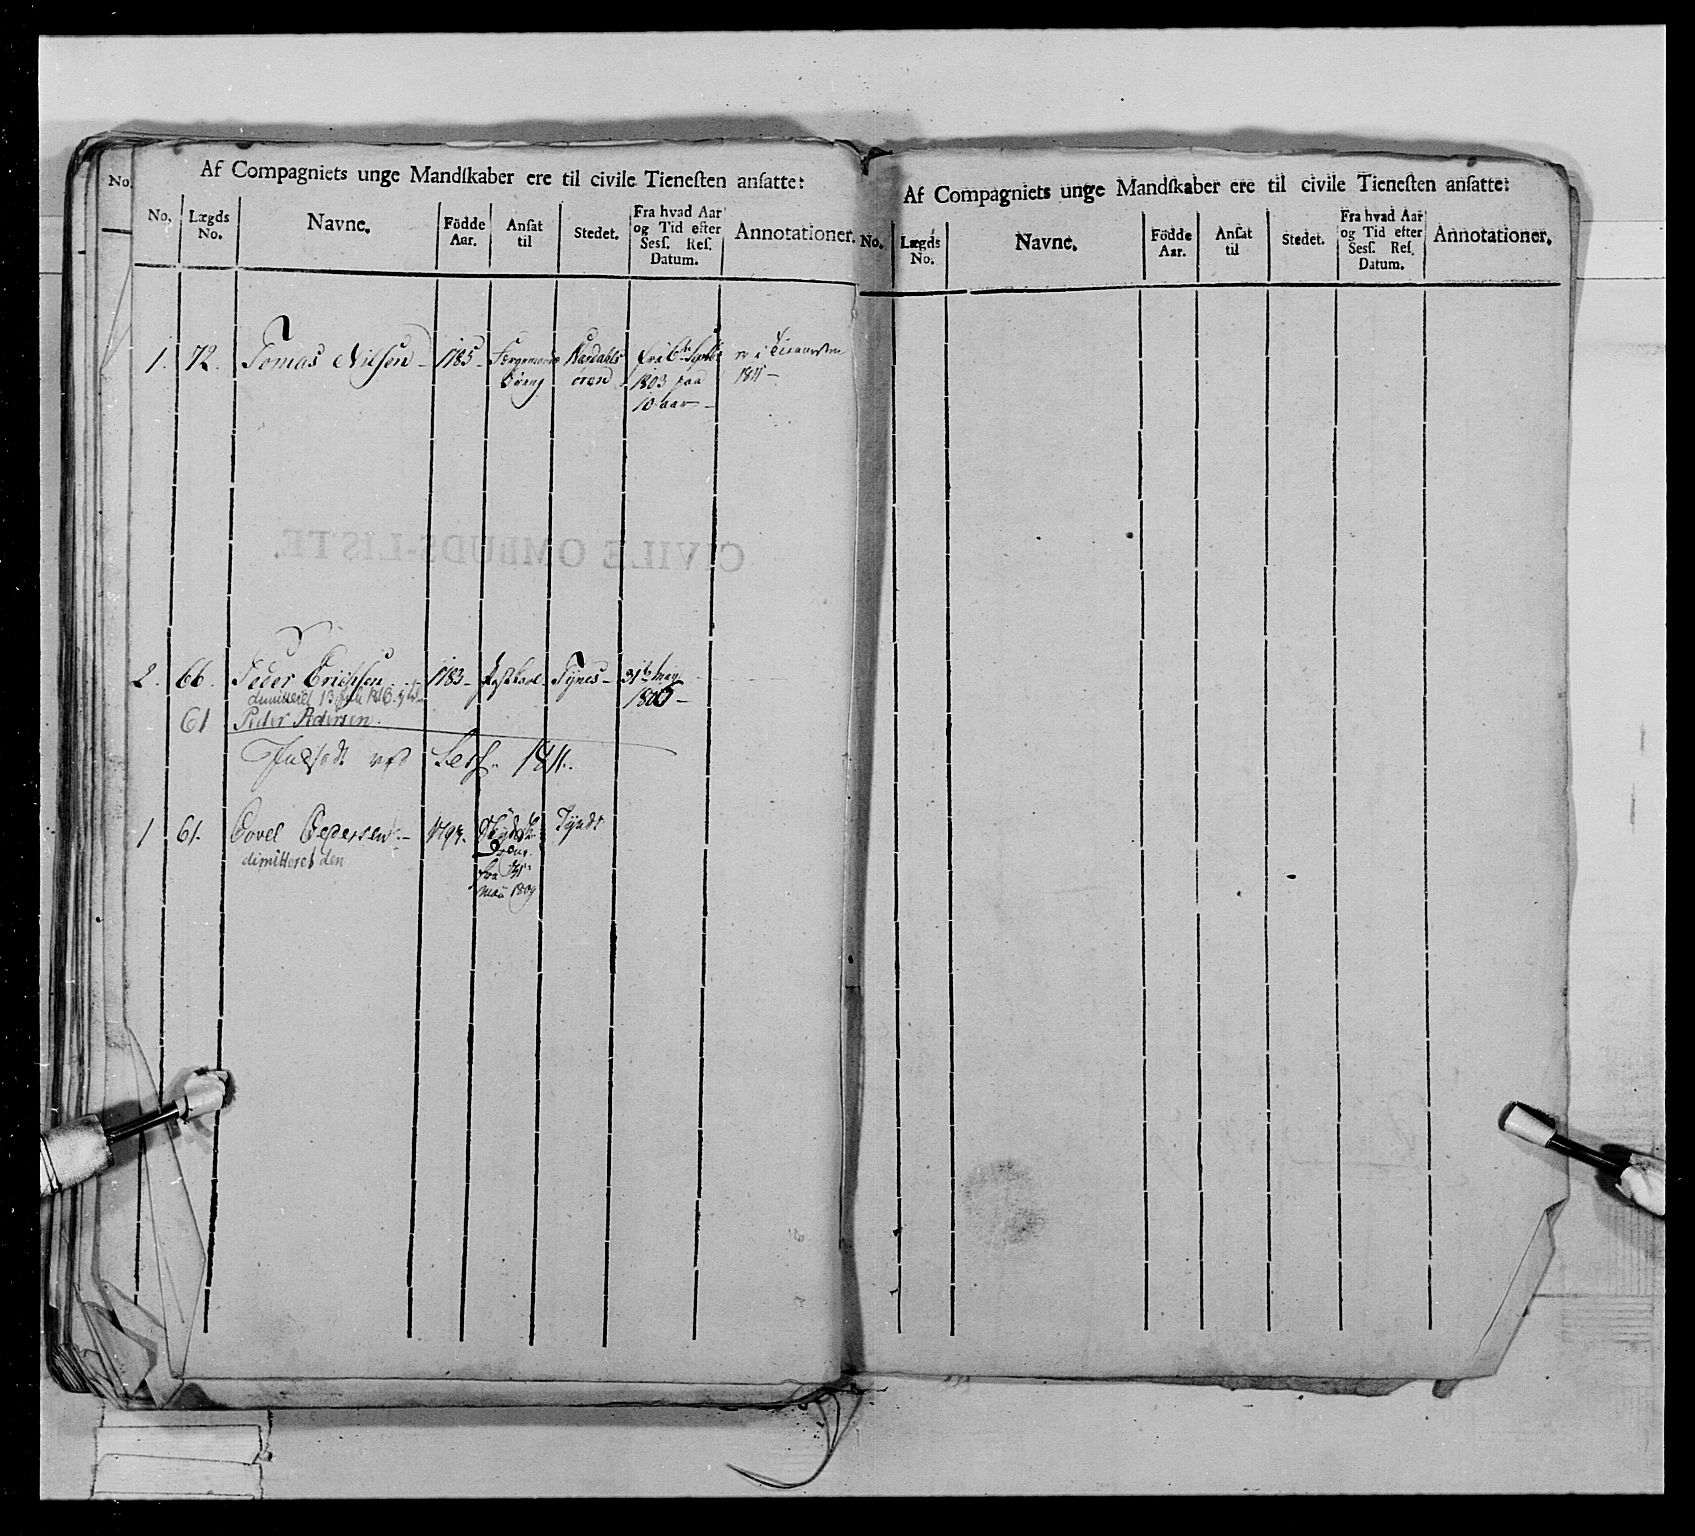 No.
Af Compagniets unge Mandſkaber ere til civile Tieneſten anſatte:
No. Lægds No. Navne. Födde Aar. Anſat til Stedet. Fra hvad Aar og Tid efter Sesſ. Reſ. Datum. Annotationer.
1. 72. Tomas Nilsen 1785 Færgemands Værdahls fra 6te Septbr er i Tienesten
dreng ören 1803 paa 1811
10 aar
CIVILE OMBUDS-LISTE.
2. 66. Peder Erichsen 1783 Postkarl Tynes 31te May
dimitteret 13 1805
61 Peder Pedersen
Indsadt ved Sess. 1811.
1 61. Povel Pedersen 1794. Tyndt
dimitteret den
fra
Maii 1809
Af Compagniets unge Mandſkaber ere til civile Tieneſten anſatte:
No. Lægds No. Navne. Födde Aar. Anſat til Stedet. Fra hvad Aar og Tid efter Sesſ. Reſ. Datum. Annotationer.